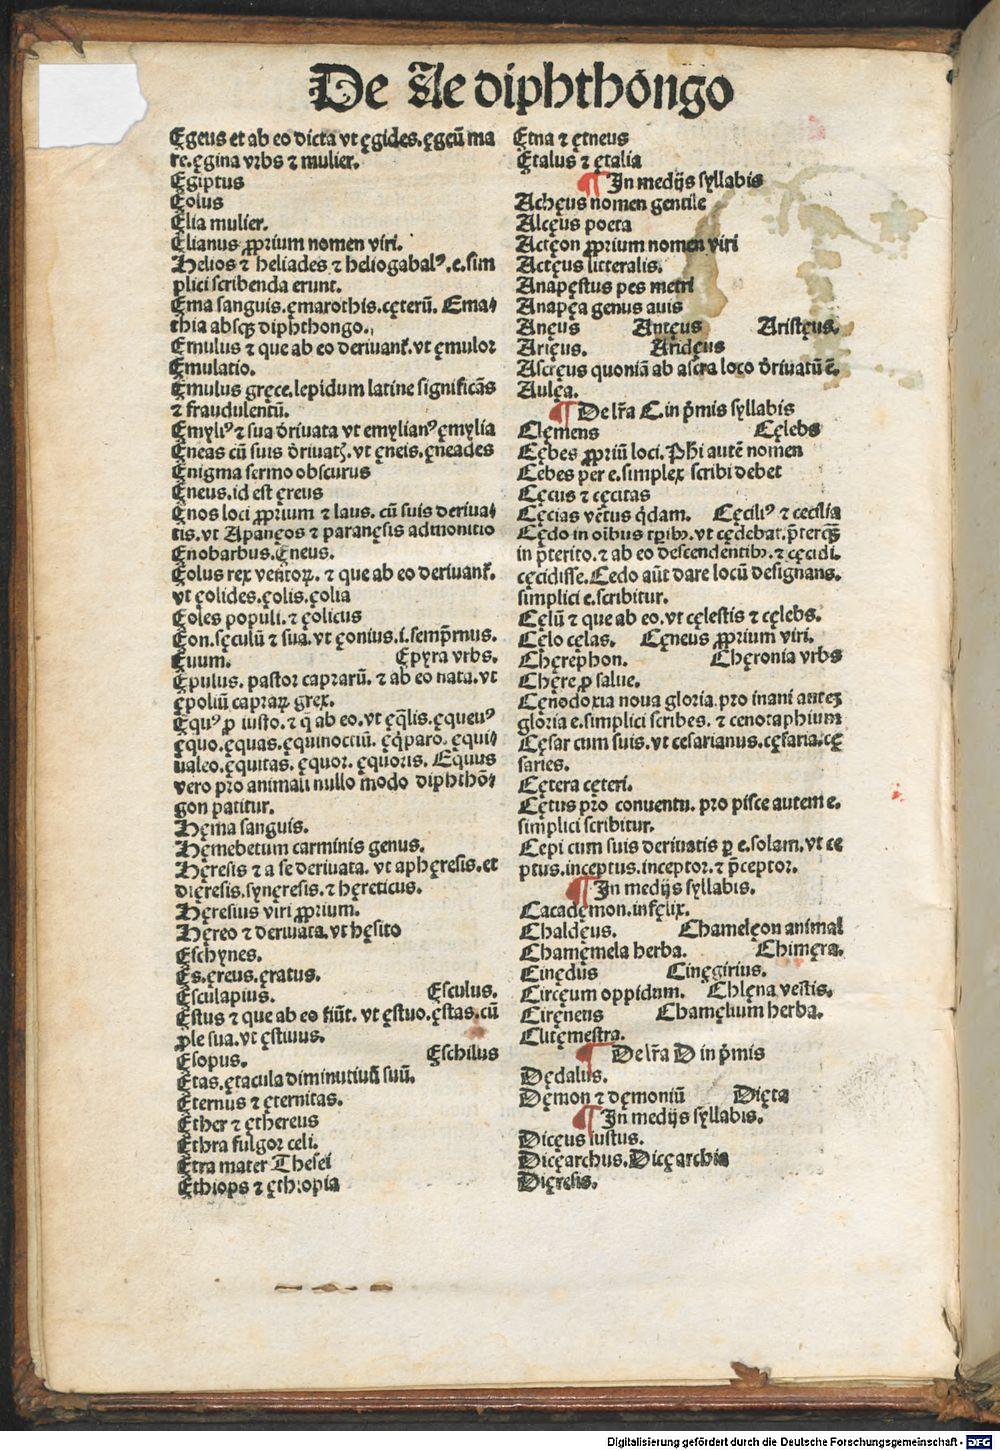 De Ae diphthōngo
Ęgeus et ab eo dicta vt ęgides.ęgeū ma
re.ęgina vrbs ⁊ mulier.
Ęgiptus
Ęolus
Ęlia mulier.
Ęlianus ꝓprium nomen viri.
Helios ⁊ heliades ⁊ heliogabalꝰ.e.sim
plici scribenda erunt.
Ęma sanguis.ęmarothis.cęterū. Ema⸗
thia absqꝫ diphthongo.
Ęmulus ⁊ que ab eo deriuant̄. vt ęmulor
Ęmulatio.
Ęmulus gręce.lepidum latine significās
⁊ fraudulentū.
Ęmyliꝰ ⁊ sua d̄riuata vt emylianꝰ ęmylia
Ęneas cū suis d̄riuatꝭ. vt ęneis.ęneades
Ęnigma sermo obscurus
Ęneus.id est ęreus
Ęnos loci ꝓprium ⁊ laus. cū suis deriua⸗
tis.vt Apanęos ⁊ paranęsis admonitio
Ęnobarbus.Ęneus.
Ęolus rex ventoꝝ. ⁊ que ab eo deriuant̄.
vt ęolides.ęolis.ęolia
Ęoles populi. ⁊ ęolicus
Ęon.sęculū ⁊ sua. vt ęonius.i.semp̄rnus.
Ęuum. Ępyra vrbs.
Ępulus. pastor caprarū. ⁊ ab eo nata. vt
ępoliū capraꝝ grex.
Ęquꝰ ꝓ iusto. ⁊ q̄ ab eo. vt ęq̄lis.ęqueuꝰ
ęquo.ęquas.ęquinoctiū. ęq̄paro. ęqui⸗
ualeo.ęquitas. ęquor. ęquoris. Equus
vero pro animali nullo modo diphthō⸗
gon patitur.
Hęma sanguis.
Hęmebetum carminis genus.
Hęresis ⁊ a se deriuata. vt aphęresis.et
dięresis.synęresis. ⁊ hęreticus.
Hęresius viri ꝓprium.
Hęreo ⁊ deriuata.vt hęsito
Ęschynes.
Ęs.ęreus.ęratus.
Ęsculapius. Ęsculus.
Ęstus ⁊ que ab eo fiūt. vt ęstuo.ęstas.cū
ꝓle sua.vt ęstiuus.
Ęsopus. Ęschilus
Ętas.ętacula diminutiuū suū.
Ęternus ⁊ ęternitas.
Ęther ⁊ ęthereus
Ęthra fulgor celi.
Ętra mater Thesei
Ęthiops ⁊ ęthiopia
Ętna ⁊ ętneus
Ętalus ⁊ ętalia
¶ In medijs syllabis
Achęus nomen gentile
Alcęus poeta
Actęon ꝓprium nomen viri
Actęus litteralis.
Anapęstus pes metri
Anapęa genus auis
Anęus Antęus Aristęus.
Arięus. Aridęus
Ascręus quoniā ab ascra loco d̄riuatū ē.
Aulęa.
¶ De lr̄a C.in p̄mis syllabis
Clęmens Cęlebs
Cębes ꝓpriū loci. Phi autē nomen
Cebes per e.simplex scribi debet
Cęcus ⁊ cęcitas
Cęcias vētus q̄dam. Cęciliꝰ ⁊ cecilia
Cędo in oībus tꝑibꝫ. vt cędebat. p̄terqꝫ
in p̄terito. ⁊ ab eo descendentibꝫ. ⁊ cęcidi.
cęcidisse. Cedo aūt dare locū designans.
simplici e.scribitur.
Cęlū ⁊ que ab eo. vt cęlestis ⁊ cęlebs.
Cęlo cęlas. Cęneus ꝓprium viri.
Chęrephon. Chęronia vrbs
Chęre ꝓ salue.
Cęnodoxia noua gloria.pro inani auteꝫ
gloria e.simplici scribes. ⁊ cenotaphium
Cęsar cum suis. vt cesarianus.cęsaria.cę
saries.
Cętera cęteri.
Cętus pro conuentu. pro pisce autem e.
simplici scribitur.
Cepi cum suis deriuatis ꝑ e.solam. vt ce
ptus.inceptus.inceptor. ⁊ p̄ceptor.
¶ In medijs syllabis.
Cacadęmon.infęlix.
Chaldęus. Chamelęon animal
Chamęmela herba. Chimęra.
Cinędus Cinęgirius.
Circęum oppidum. Chlęna vestis.
Ciręneus Chamęlium herba.
Clitęmestra.
¶ De lr̄a D in p̄mis
Dędalus.
Dęmon ⁊ dęmoniū Dięta
¶ In medijs syllabis.
Dicęus iustus.
Dicęarchus.Dicęarchia
Dięresis.
Digitalisierung gefördert durch die Deutsche Forschungsgemeinschaft - DFG